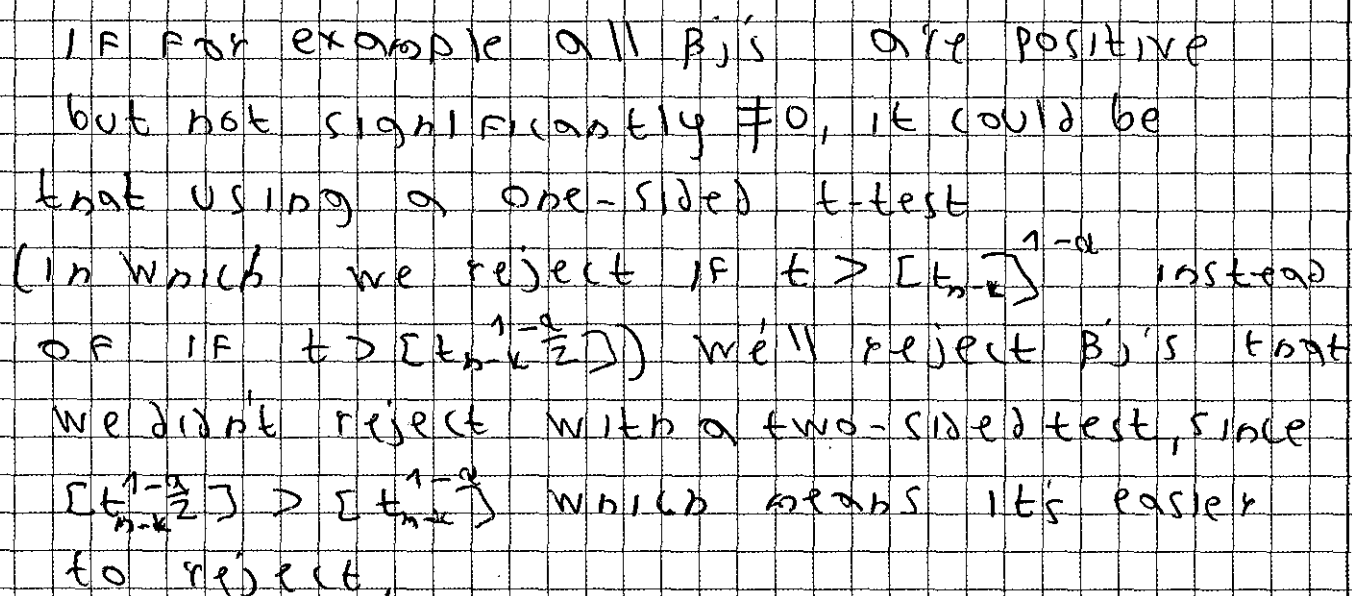 IF For example all βj's are positive
but not significantly ≠0, it could be
that using a one-sided t-test
(in which we reject if t > [t_{n-k}]^{1-α} instead
of if t > [t_{n-k}^{1-α/2}]) we'll reject βj's that
we didn't reject with a two-sided test, since
[t_{n-k}^{1-α/2}] > [t_{n-k}^{1-α}] which means it's easier
to reject.